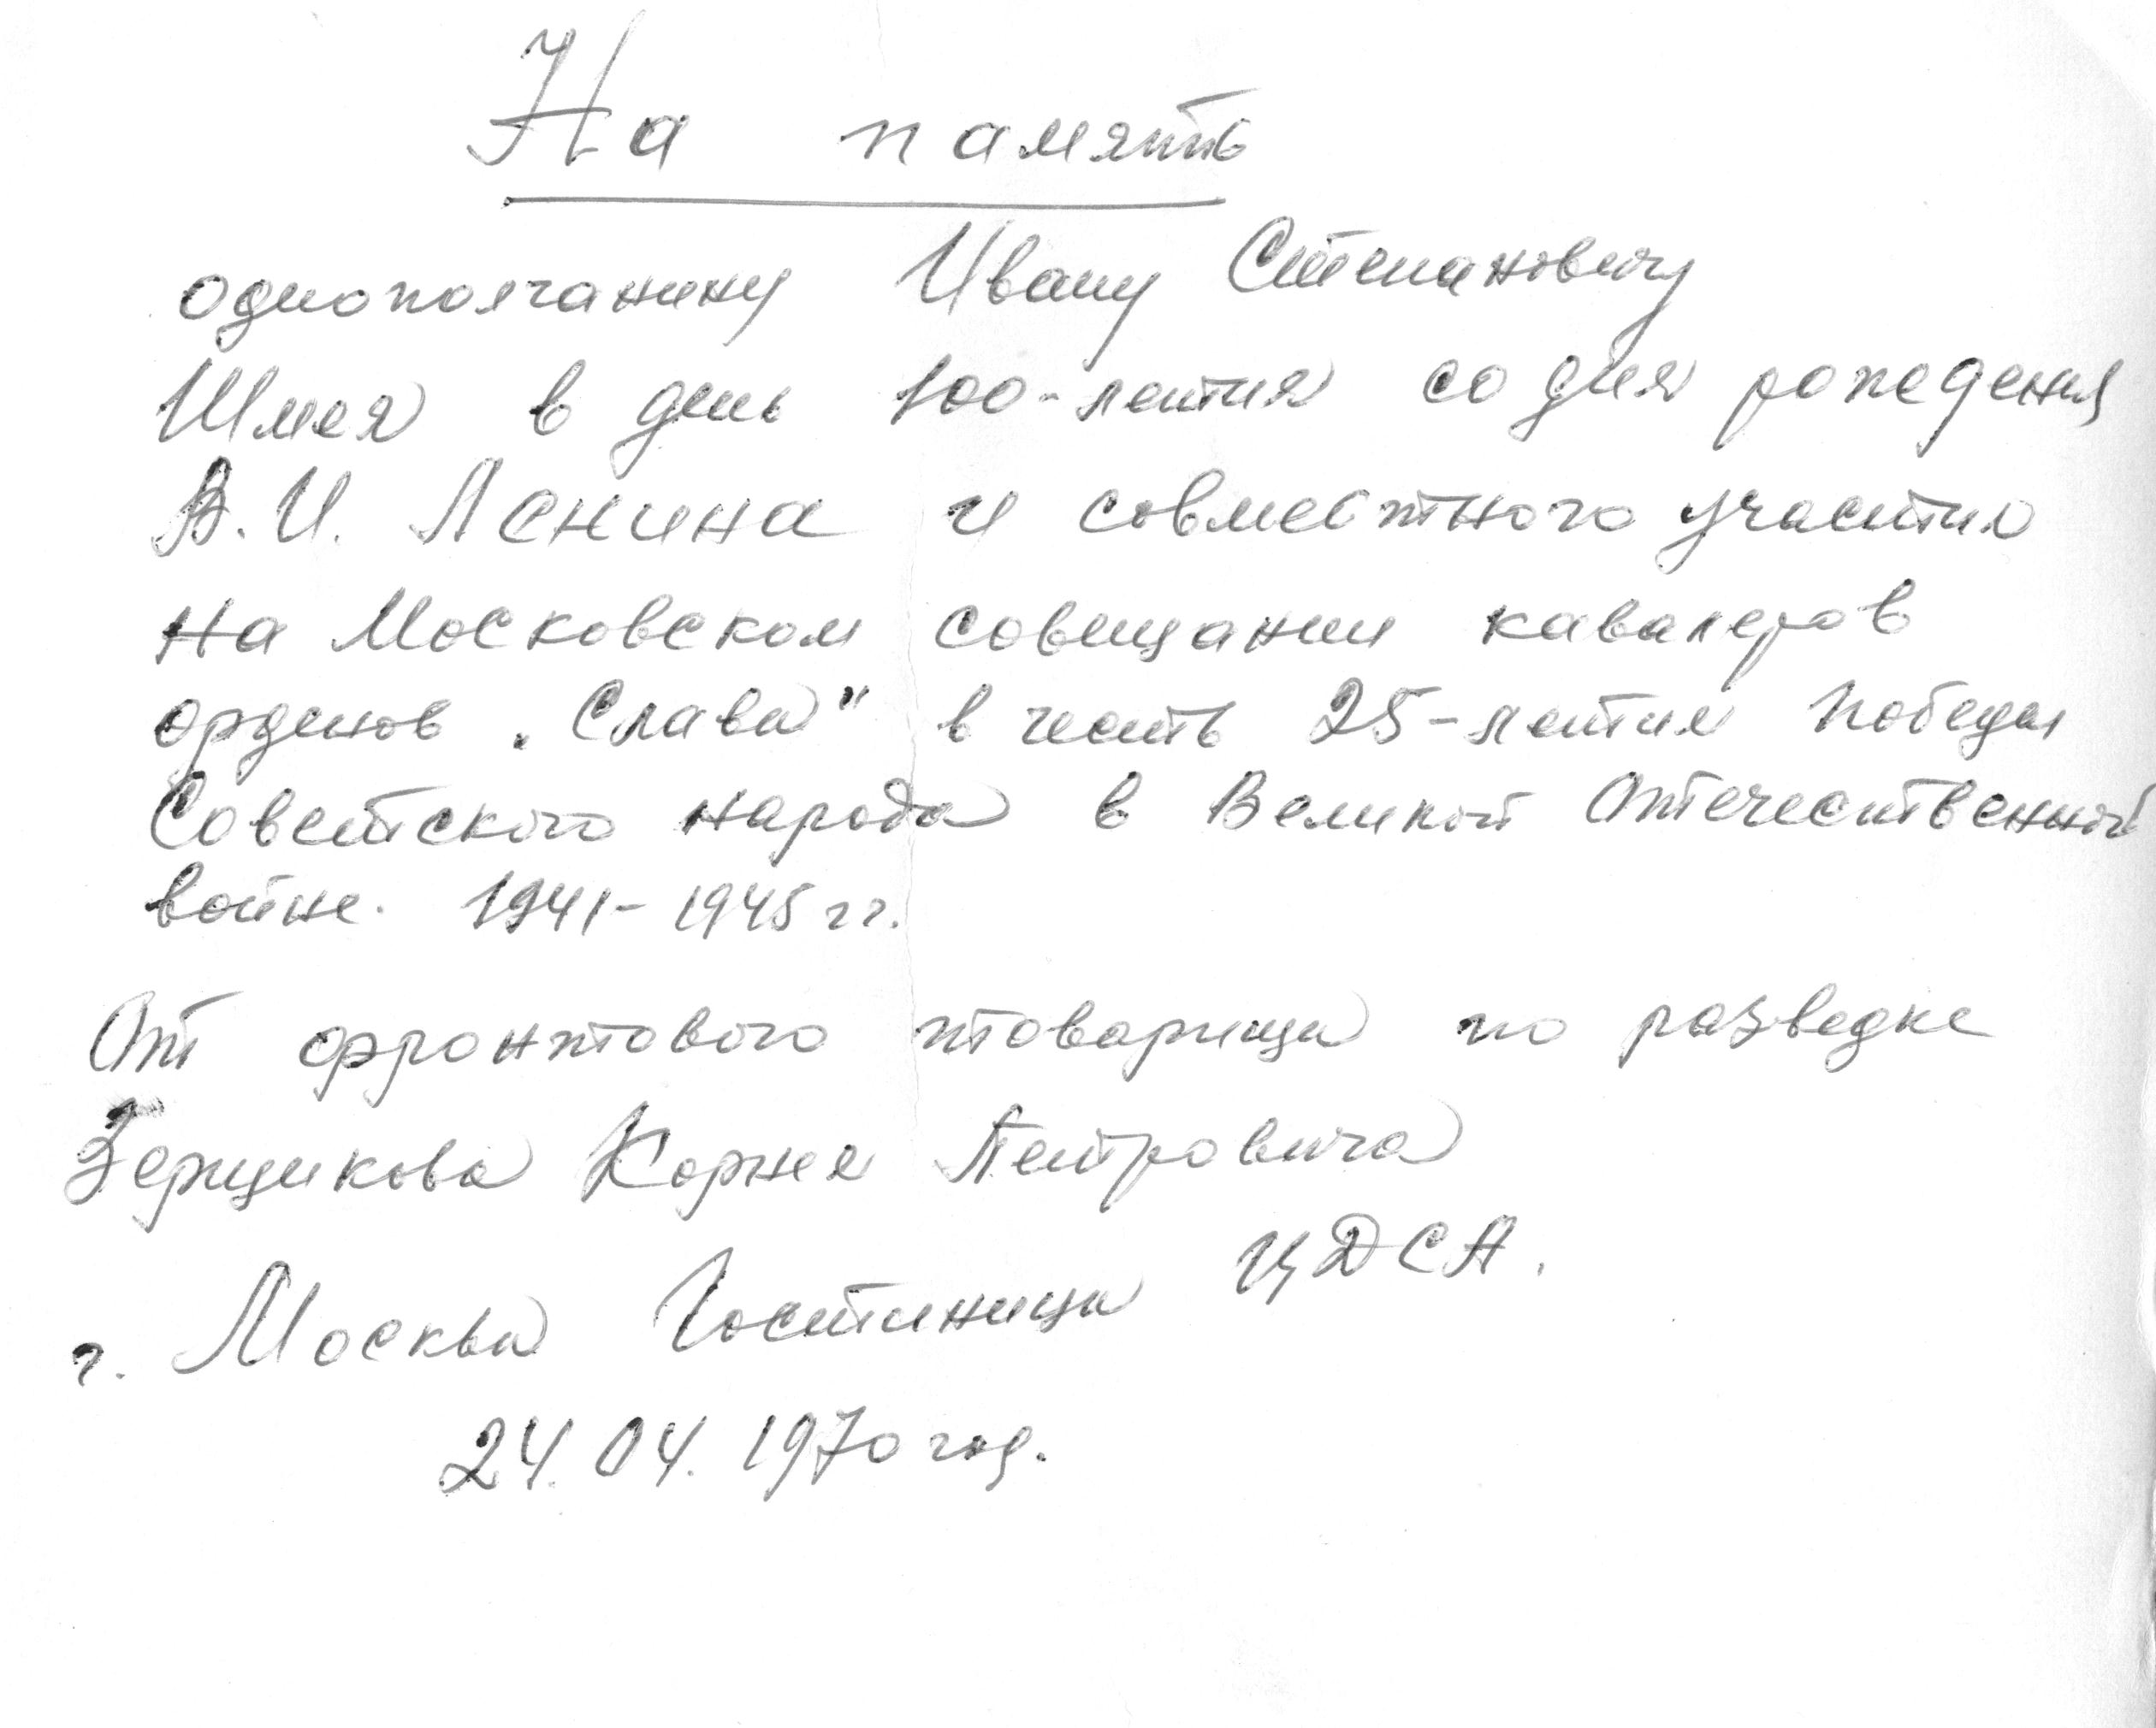 На память
однополчанину Ивану Степановичу
Шмея в день 100-летия со дня рождения
В. И. Ленина и совместного участия
на Московском совещании кавалеров
орденов „Слава" в честь 25-летия Победы
Советского народа в Великой Отечественной
войне. 1941-1945 гг.
От фронтового товарища по разведке
Корнея Петровича
г. Москва Гостиница ЦДСА.
24.04.1970 год.